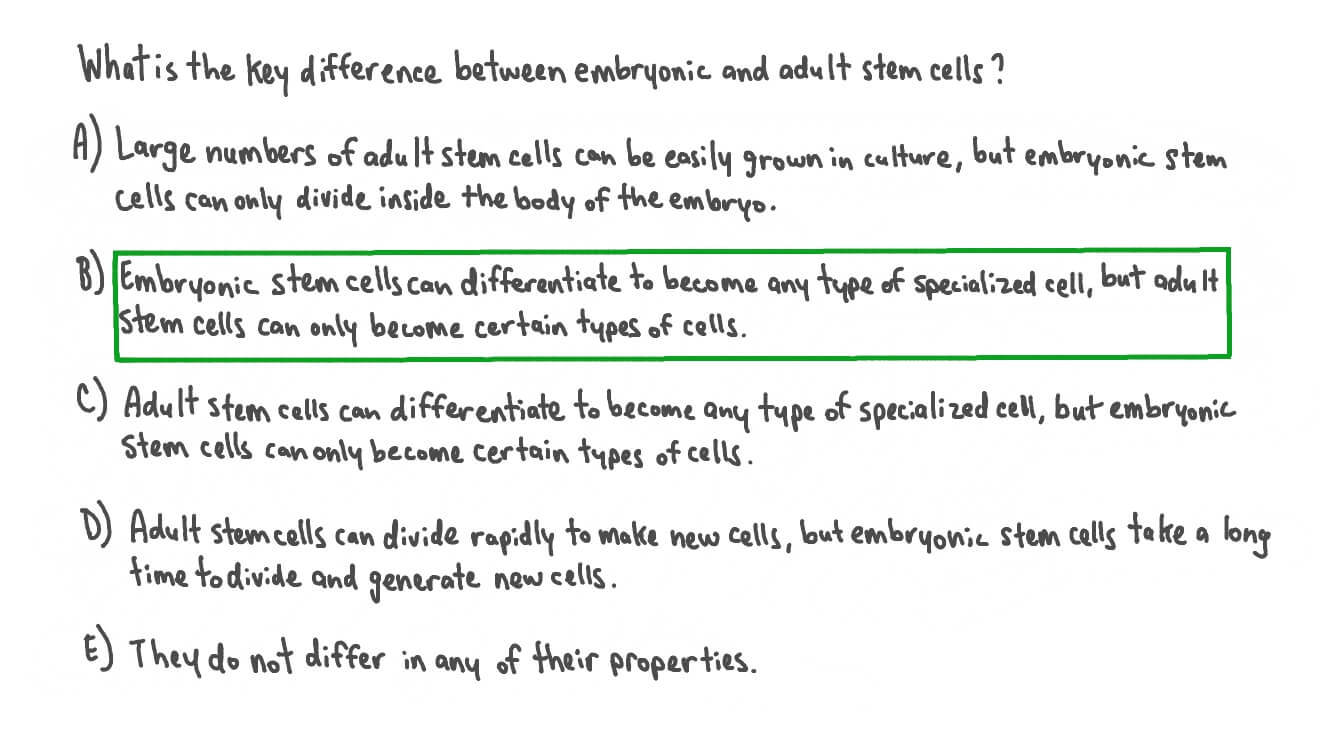 What is the key difference between embryonic and adult stem cells?
A) Large numbers of adult stem cells can be easily grown in culture, but embryonic stem
cells can only divide inside the body of the embryo.
B) Embryonic stem cells can differentiate to become any type of specialized cell, but adult
stem cells can only become certain types of cells.
C) Adult stem cells can differentiate to become any type of specialized cell, but embryonic
stem cells can only become certain types of cells.
D) Adult stem cells can divide rapidly to make new cells, but embryonic stem cells take a long
time to divide and generate new cells.
E) They do not differ in any of their properties.